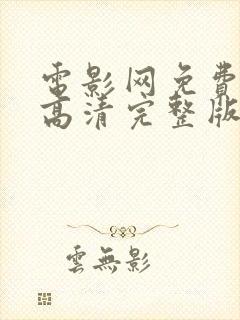 電影网免費
高清完整版
雲無影